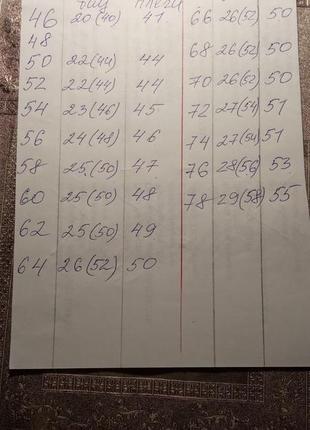 плечи
46 20(40) 41 66 26(52) 50
48
50 22(44) 44 68 26(52) 50
52 22(44) 44 70 26(52) 50
54 23(46) 45 72 27(54) 51
56 24(48) 46 74 27(54) 51
58 25(50) 47 76 28(56) 53
60 25(50) 48 78 29(58) 55
62 25(50) 49
64 26(52) 50